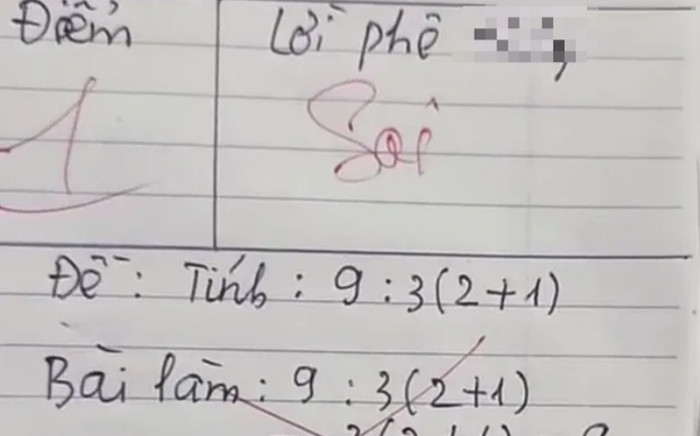 Điểm
Lời phê
1
Sai
Đề: Tính: 9:3(2+1)
Bài làm: 9:3(2+1)